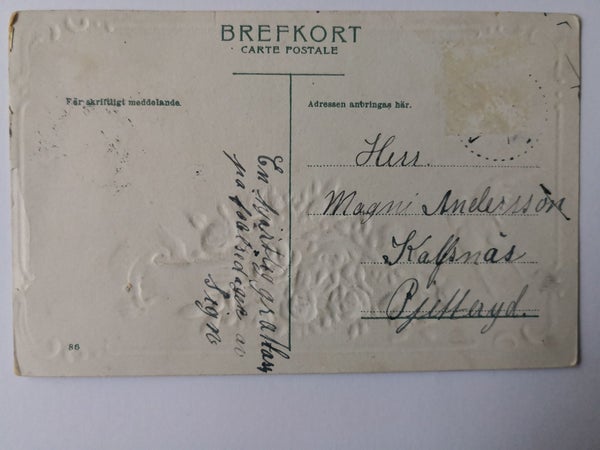 BREFKORT
CARTE POSTALE
För skriftligt meddelande.
Adressen anbringas här.
En Hjärtlig gratlan
på födelsedagen av
Signe
Herr.
Magni Andersson
Kalfsnäs
Pjetteryd.
86